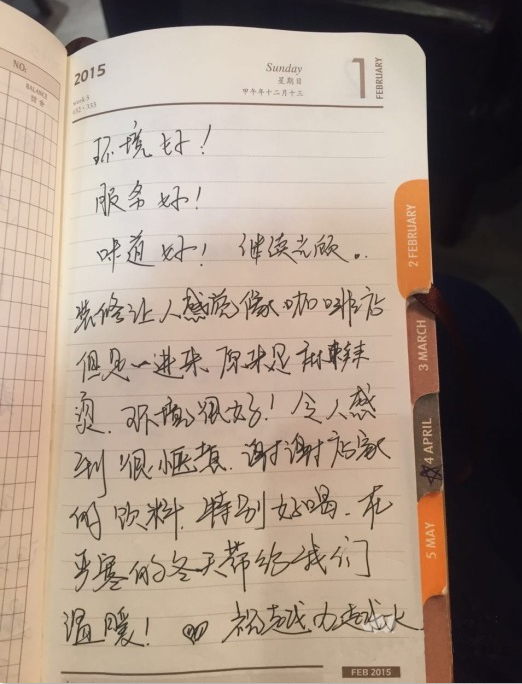 NO.
BALANCE
2015
Sunday
星期日
甲午年十二月十三
1
FEBRUARY
环境好!
服务好!
味道好! 继续光顾。.
装修让人感觉像咖啡店
但是一进来,原来是麻辣
烫. 环境很好! 令人感
到很惬意. 谢谢店家
的饮料, 特别好喝. 在
严寒的冬天带给我们
温暖! 祝越办越火
2 FEBRUARY
3 MARCH
4 APRIL
5 MAY
FEB 2015